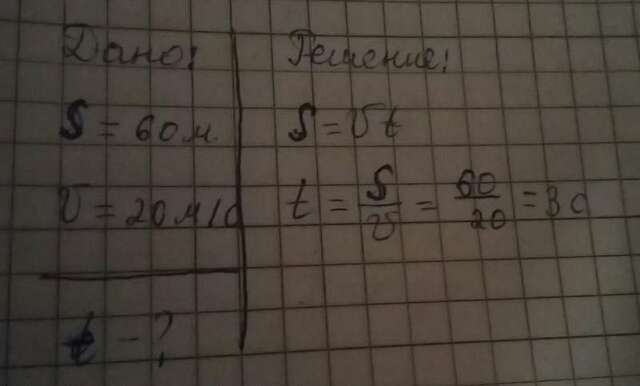 Дано:
S = 60 м.
υ = 20 м/с
t - ?
Решение:
S = υt
t = S/υ = 60/20 = 3 с